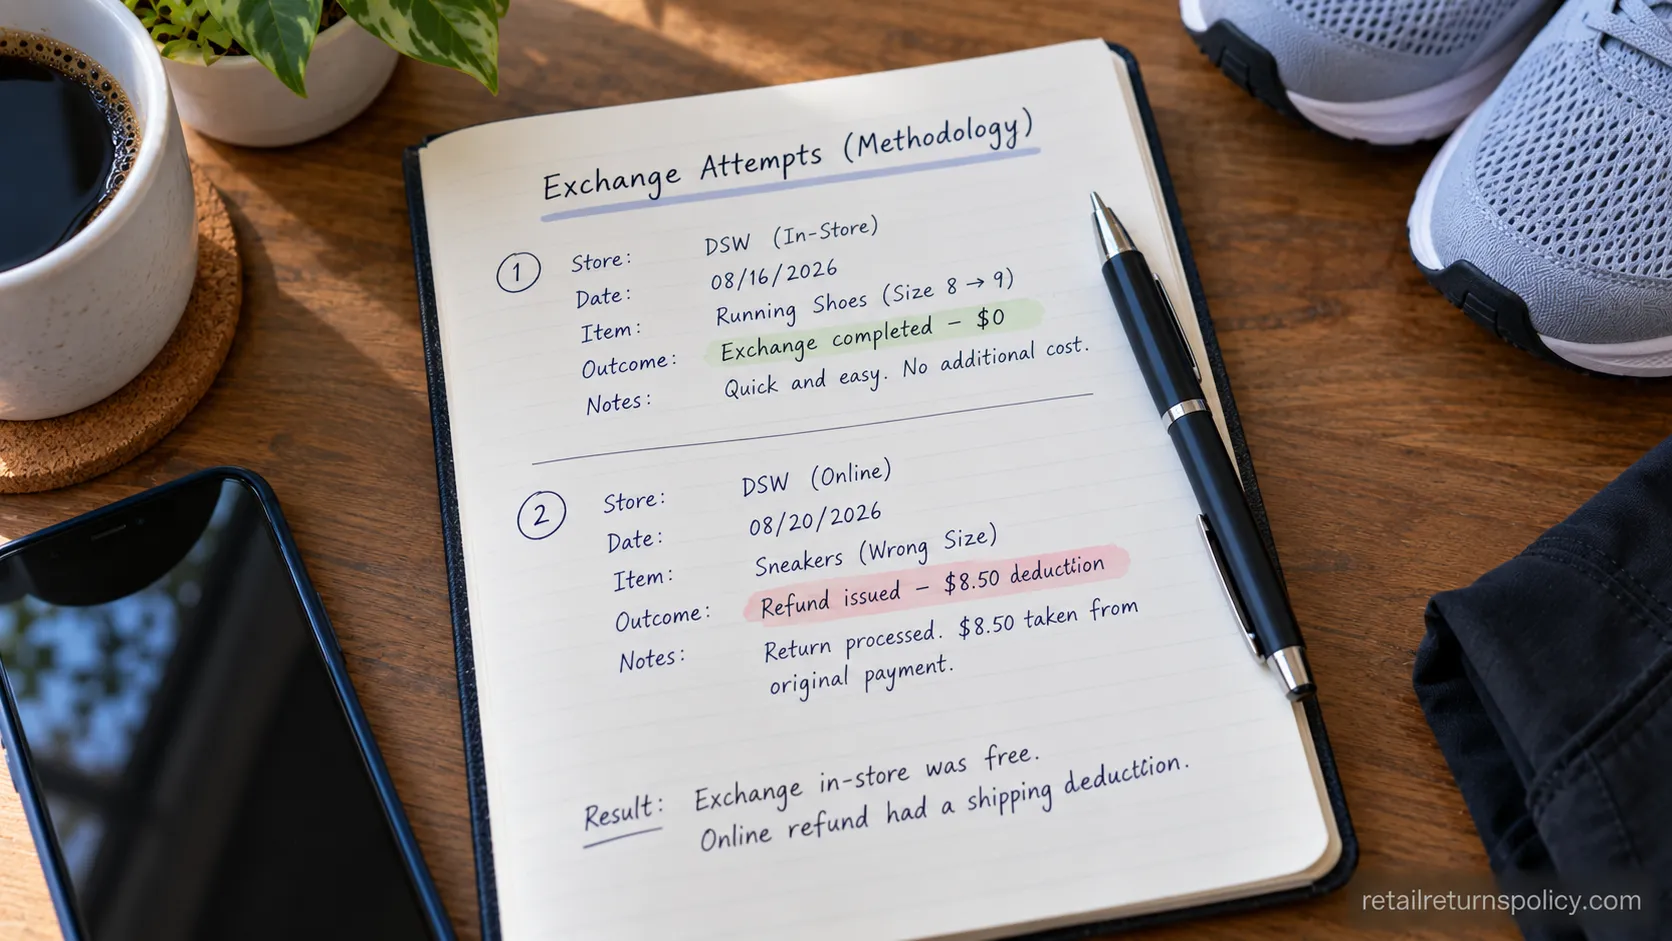 Exchange Attempts (Methodology)
1 Store: DSW (In-Store)
Date: 08/16/2026
Item: Running Shoes (Size 8 → 9)
Outcome: Exchange completed – $0
Notes: Quick and easy. No additional cost.
2 Store: DSW (Online)
Date: 08/20/2026
Item: Sneakers (Wrong Size)
Outcome: Refund issued – $8.50 deduction
Notes: Return processed. $8.50 taken from
original payment.
Result: Exchange in-store was free.
Online refund had a shipping deduction.
retailreturnspolicy.com